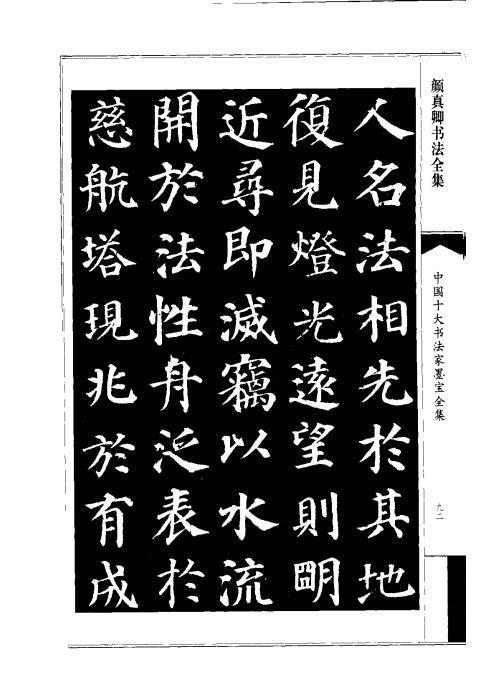 颜真卿书法全集
中国十大书法家墨宝全集
九二
人名法相先於其地
復見燈光遠望則明
近尋即滅竊以水流
開於法性舟泛表於
慈航塔現兆於有成